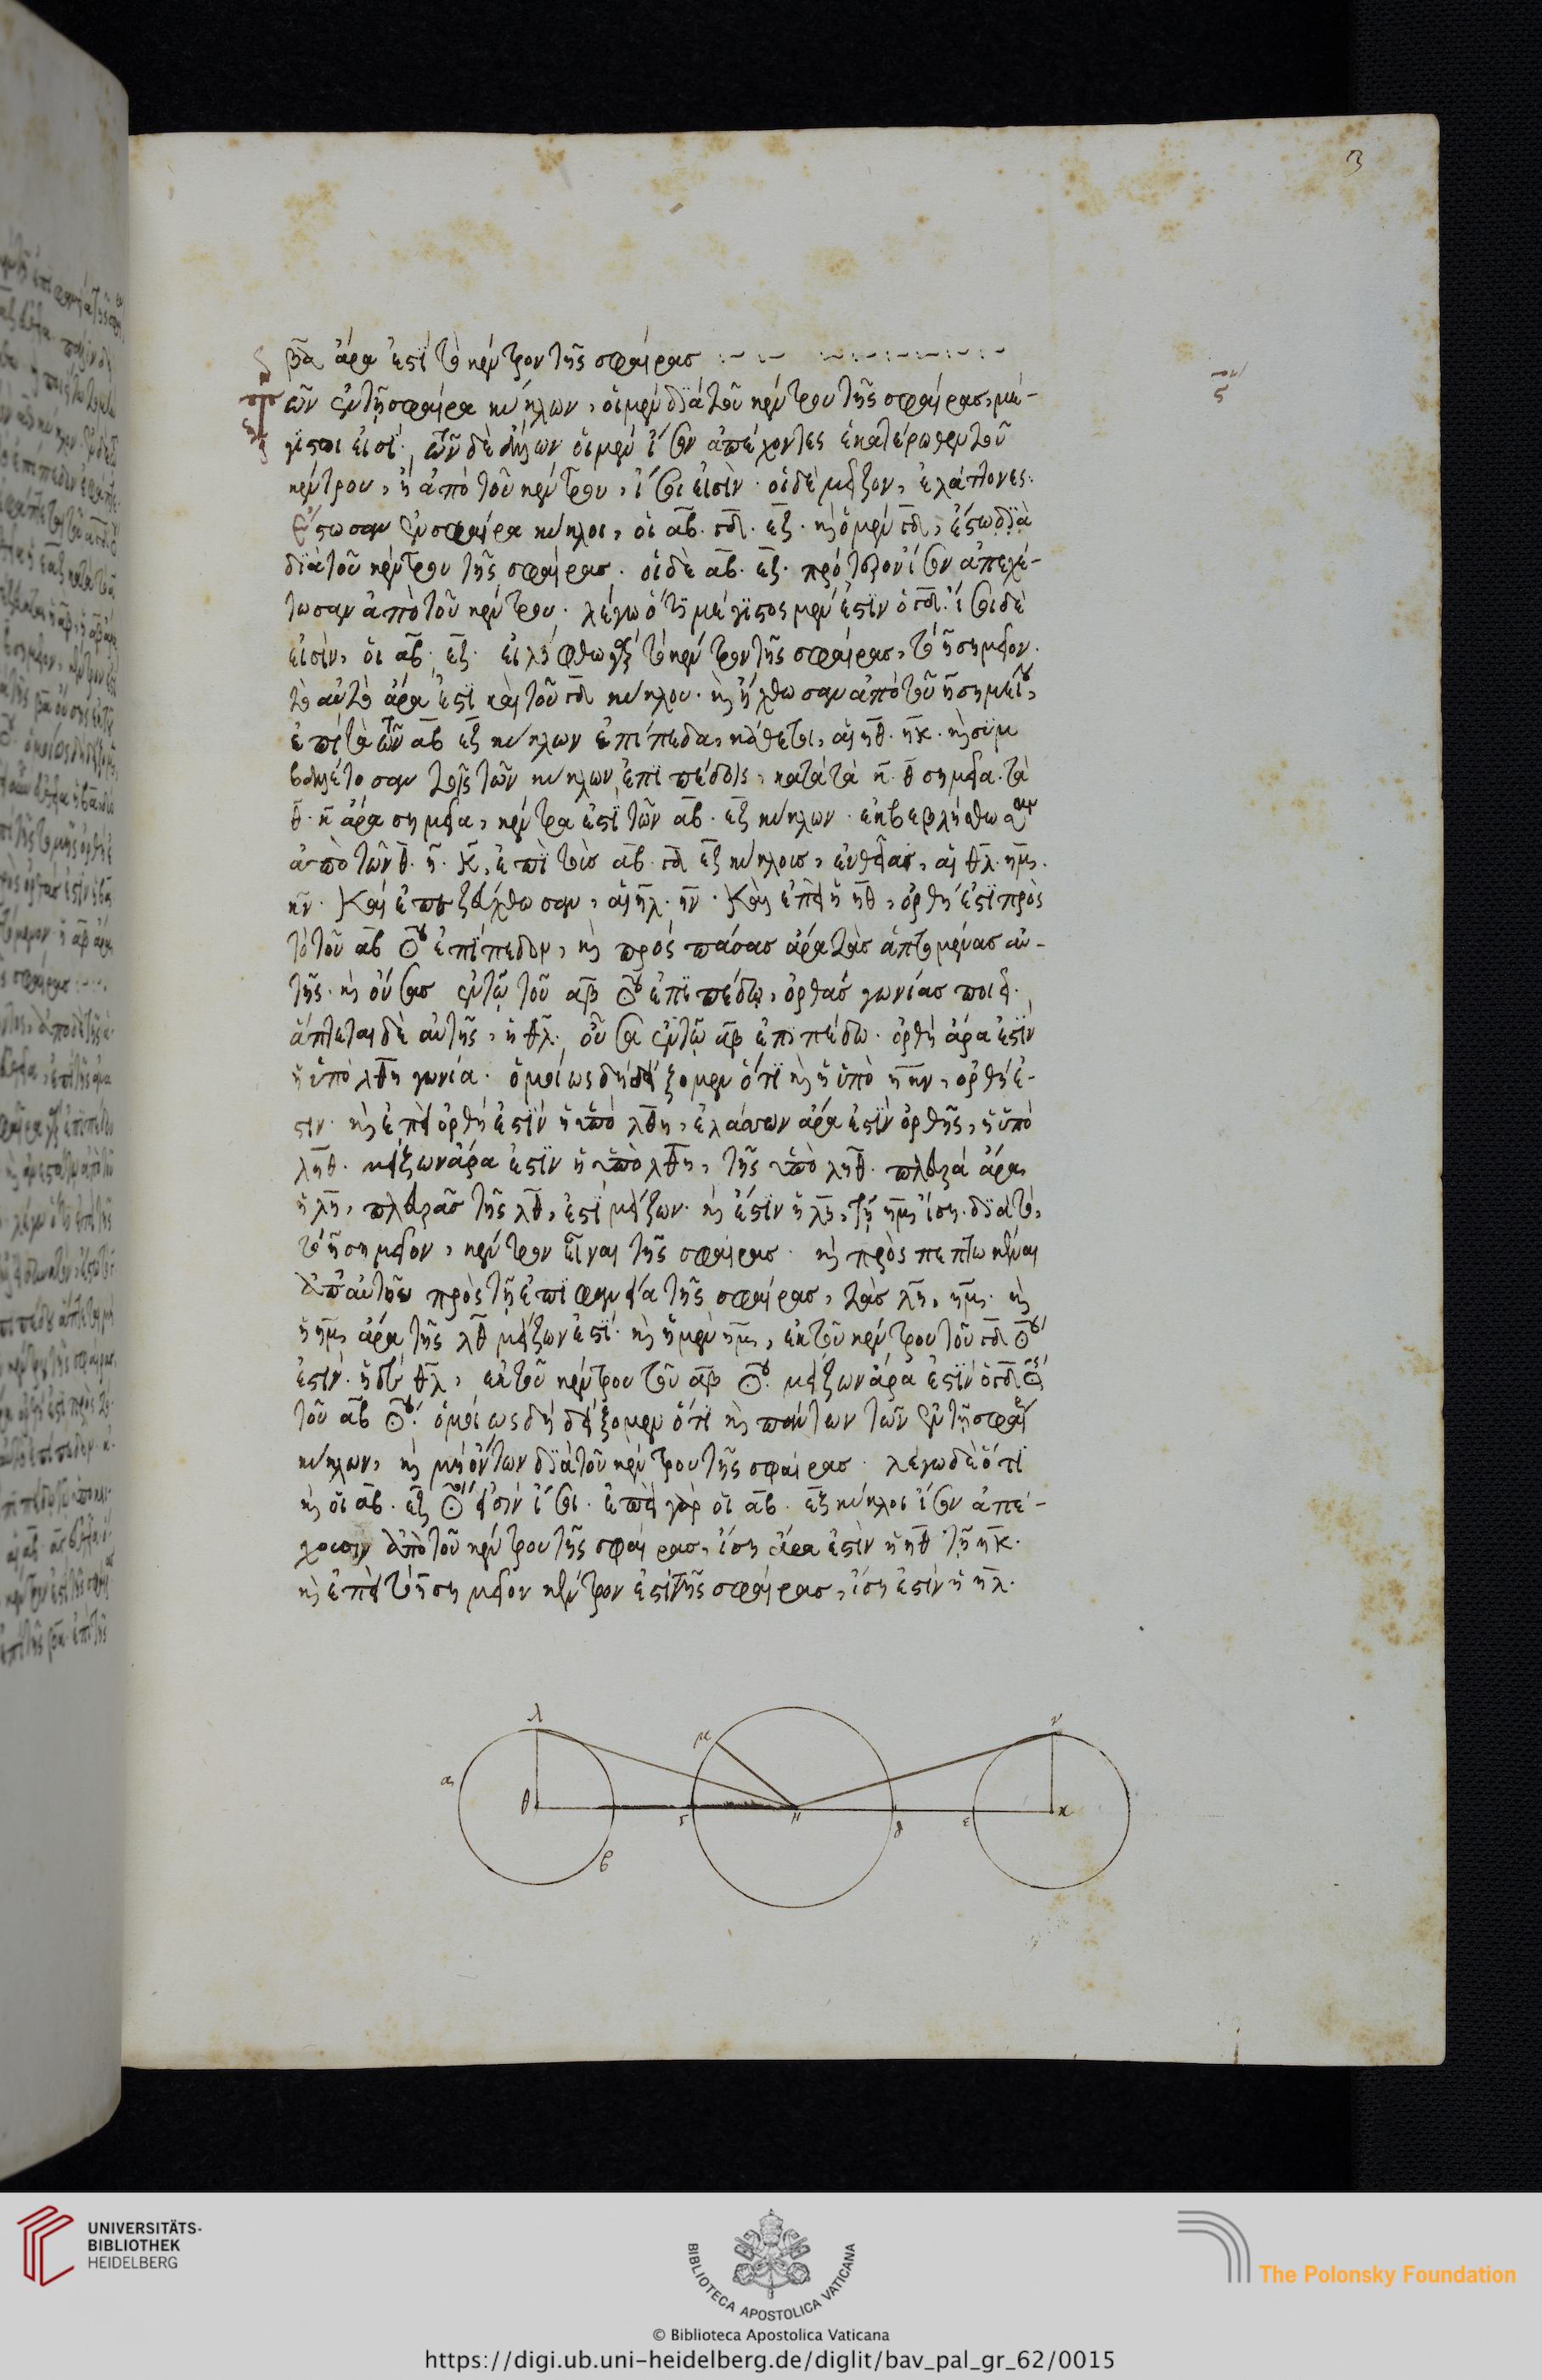 3
β̅α̅ ἄρα ἐστὶ τὸ κέντρον τῆς σφαίρασ
τῶν ἐν τῆ σφαίρα κύκλων, οἱ μὲν διὰ τοῦ κέντρου τῆς σφαίρασ, μέ-
γϊστοι εἰσὶ· τῶν δὲ ἄλλων οἱ μὲν ἴσον ἀπέχοντες ἑκατέρωθεν τοῦ
κέντρου, ἢ ἀπὸ τοῦ κέντρου, ἴσοι εἰσὶν· οἱ δὲ μεῖζον, ἐλάττονες·
Ἔστωσαν ἐν σφαίρα κύκλοι, οἱ α̅β̅· γ̅δ̅· ε̅ζ̅· κὶ ὁ μὲν γ̅δ̅, ἔστω διὰ
διὰ τοῦ κέντρου τῆς σφαίρασ· οἱ δὲ α̅β̅· ε̅ζ̅· πρότερον ἴσον ἀπεχέ-
τωσαν ἀπὸ τοῦ κέντρου· λέγω ὅτϊ μέγϊστος μὲν ἐστϊν ὁ γ̅δ̅· ἴσοι δὲ
εἰσὶν, οἱ α̅β̅· ε̅ζ̅· εἰλήφθω γὰρ τὸ κέντρον τῆς σφαίρασ, τὸ η̅ σημεῖον·
τὸ αὐτὸ ἄρα ἐστὶ καὶ τοῦ γ̅δ̅ κύκλου· κὶ ἤχθωσαν ἀπὸ τοῦ η̅ σημείου,
ἐπὶ τὰ τῶν α̅β̅ ε̅ζ̅ κύκλων ἐπίπεδα, κάθετοι, αἱ η̅θ̅· η̅κ̅· κὶ συμ
βαλλέτοσαν τοῖς τῶν κύκλων ἐπϊπέδοις, κατὰ τὰ κ̅· θ̅ σημεῖα· τὰ
θ̅· κ̅ ἄρα σημεῖα, κέντρα ἐστὶ τῶν α̅β̅· ε̅ζ̅ κύκλων· ἐκβεβλήσθωσαν
ἀπὸ τῶν θ̅· η̅· κ̅, ἐπὶ τοὺσ α̅β̅· γ̅δ̅ ε̅ζ̅ κύκλουσ, εὐθεῖαι, αἱ θ̅λ̅· η̅μ̅·
κ̅ν̅· Καὶ ἐπεζεύχθωσαν, αἱ η̅λ̅· η̅ν̅· Καὶ ἐπεὶ ἡ η̅θ̅, ὀρθή ἐστϊ πρὸς
τὸ τοῦ α̅β̅ ☉ου ἐπίπεδον, κὶ πρὸς πάσασ ἄρα τὰσ ἁπτομένασ αὐ-
τῆς· κὶ οὔσασ ἐν τῷ τοῦ α̅β̅ ☉ου ἐπιπέδῳ, ὀρθάσ γωνίασ ποιεῖ·
ἅπτεται δὲ αὐτῆς, ἡ θ̅λ̅· οὖσα ἐν τῷ α̅β̅ ἐπιπέδω· ὀρθὴ ἄρα ἐστϊν
ἡ ὑπὸ λ̅θ̅η̅ γωνία· ὁμοίως δὴ δείξομεν ὅτϊ κὶ ἡ ὑπὸ η̅κ̅ν̅, ὀρθή ἐ-
στιν· κὶ ἐπεὶ ὀρθή ἐστϊν ἡ ὑπὸ λ̅θ̅η̅, ἐλάσσων ἄρα ἐστϊν ὀρθῆς, ἡ ὑπὸ
λ̅η̅θ̅· μείζων ἄρα ἐστϊν ἡ ὑπὸ λ̅θ̅η̅, τῆς ὑπὸ λ̅η̅θ̅· πλευρά ἄρα
ἡ λ̅η̅, πλευρᾶσ τῆς λ̅θ̅, ἐστὶ μείζων· κὶ ἔστιν ἡ λ̅η̅, τῆ η̅μ̅ ἴση· διὰ τὸ,
τὸ η̅ σημεῖον, κέντρον εἶναι τῆς σφαίρασ· κὶ προσπεπτωκέναι
ἀπ' αὐτῆς πρὸς τῆ ἐπιφανεία τῆς σφαίρασ, τὰσ λ̅η̅, η̅μ̅· κὶ
ἡ η̅μ̅ ἄρα τῆς λ̅θ̅ μείζων ἐστί· κὶ ἡ μὲν η̅μ̅, ἐκ τοῦ κέντρου τοῦ γ̅δ̅ ☉ου
ἐστίν· ἡ δὲ θ̅λ̅, ἐκ τοῦ κέντρου τοῦ α̅β̅ ☉ου· μείζων ἄρα ἐστϊν ὁ γ̅δ̅ ☉ος
τοῦ α̅β̅ ☉ου· ὁμοίως δὴ δείξομεν ὅτϊ κὶ πάντων τῶν ἐν τῇ σφαίρα
κύκλων, κὶ μὴ ὄντων διὰ τοῦ κέντρου τῆς σφαίρασ· λέγω δὲ ὅτϊ
κὶ οἱ α̅β̅· ε̅ζ̅ ☉οι εἰσϊν ἴσοι· ἐπεὶ γὰρ οἱ α̅β̅· ε̅ζ̅ κύκλοι ἴσον ἀπέ-
χουσιν ἀπὸ τοῦ κέντρου τῆς σφαίρασ, ἴση ἄρα ἐστὶν ἡ η̅θ̅ τῆ η̅κ̅·
κὶ ἐπεὶ τὸ η̅ σημεῖον κέντρον ἐστὶ τῆς σφαίρασ, ἴση ἐστὶν ἡ η̅λ̅·
λ μ ν
α θ γ η δ ε κ
β
UNIVERSITÄTS-
BIBLIOTHEK
HEIDELBERG
BIBLIOTECA APOSTOLICA VATICANA
The Polonsky Foundation
© Biblioteca Apostolica Vaticana
https://digi.ub.uni-heidelberg.de/diglit/bav_pal_gr_62/0015